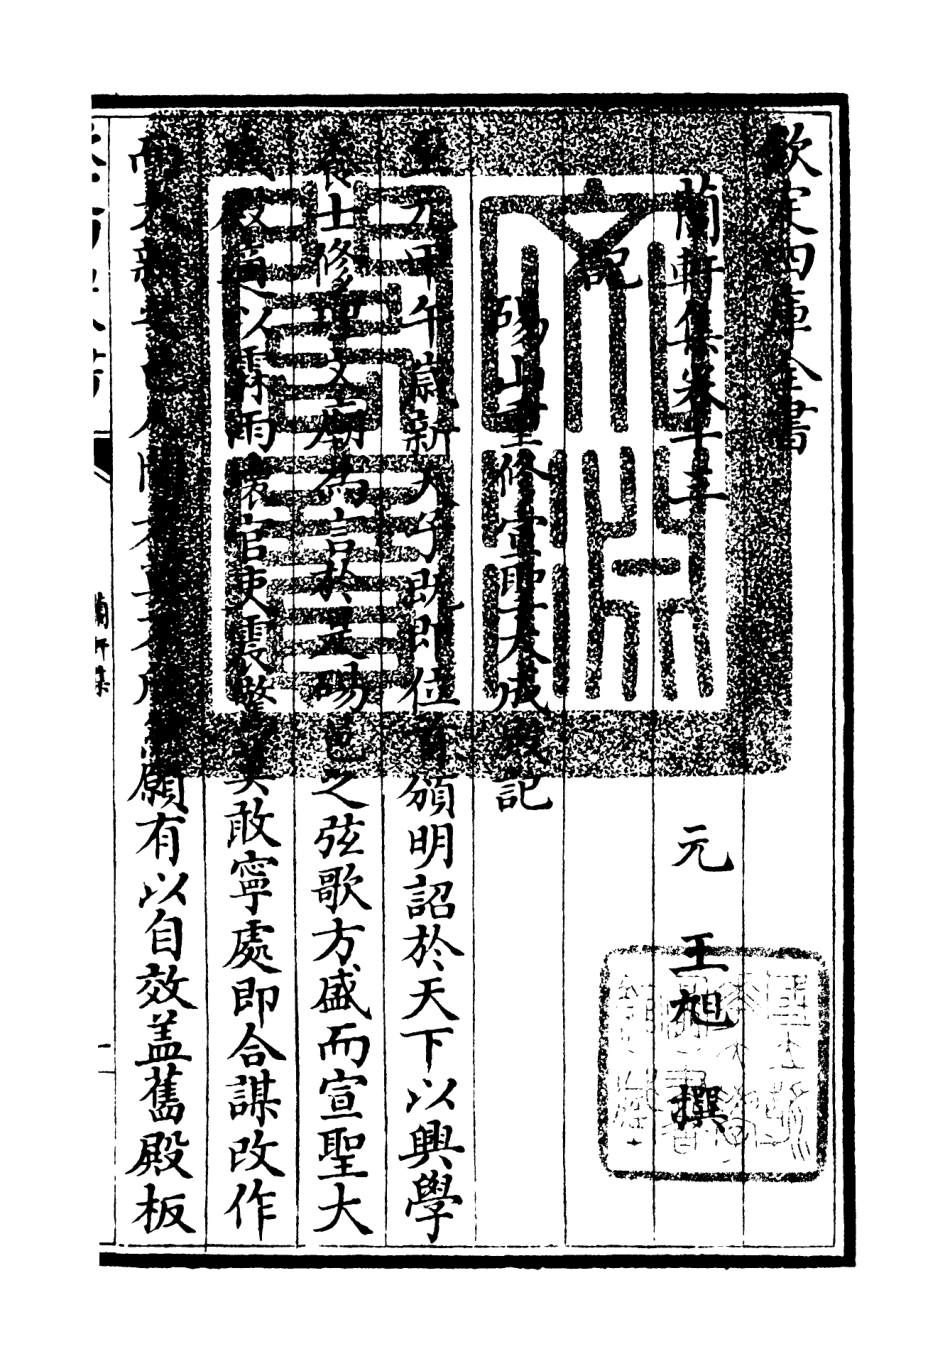 欽定四庫全書
蘭軒集卷十　元　王旭　撰
記
碭山重修宣聖大成殿記
至元甲午歲新天子既即位首頒明詔於天下以興學
養士修理文廟為言於是碭邑之弦歌方盛而宣聖大
成殿適以霖雨壞官吏震莫敢寧處即合謀改作
而大新邑人聞願有以自效蓋舊殿板
蘭軒集